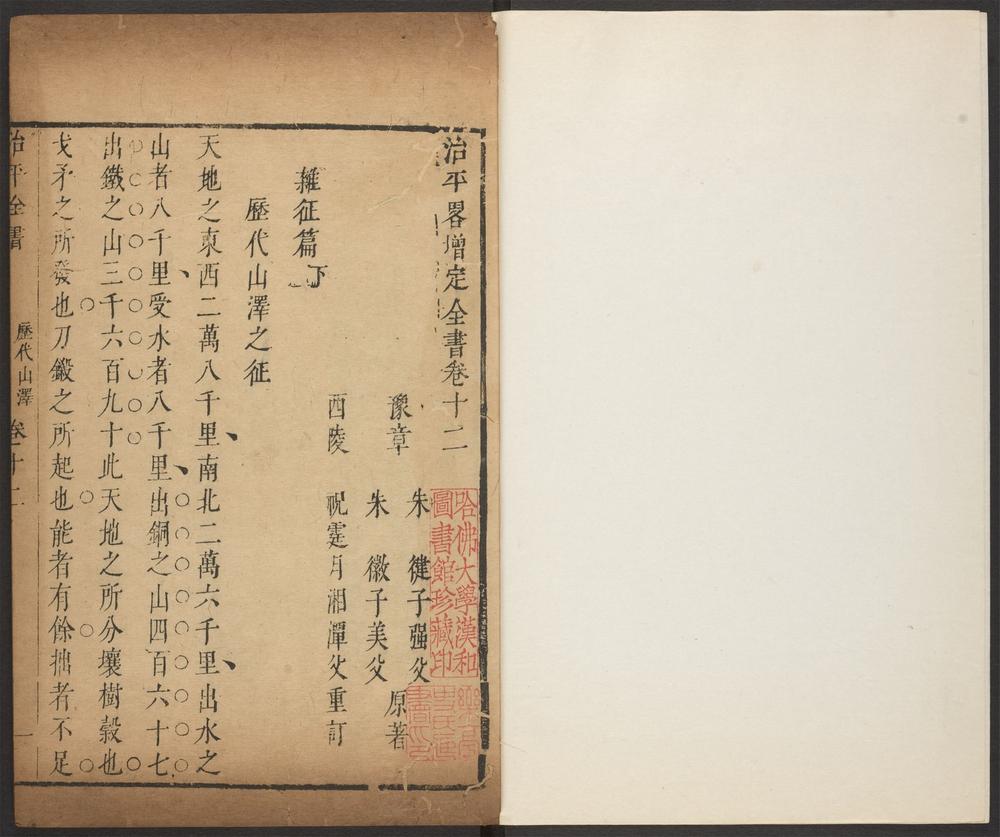 治平畧增定全書卷十二
豫章
朱 健子强父
朱 徽子美父
原著
西陵 祝霆月湘潭父重訂
雜征篇下
歷代山澤之征
天地之東西二萬八千里南北二萬六千里出水之
山者八千里受水者八千里出銅之山四百六十七
出鐵之山三千六百九十此天地之所分壤樹榖也
戈矛之所發也刀鍛之所起也能者有餘拙者不足
治平全書 歷代山澤 卷十二 一
哈佛大學漢和
圖書館珍藏印